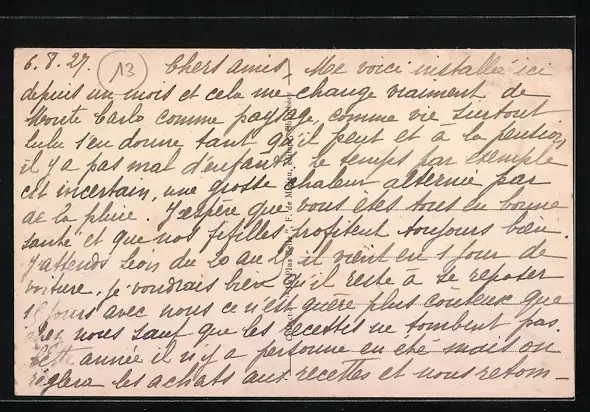 6.8.27. 13 Chers amis, Me voici installée ici
depuis un mois et cela me change vraiment de
Monte Carlo comme paysage, comme vie surtout
Lulu s'en donne tant qu'il peut et à la pension
il y a pas mal d'enfants. Le temps par exemple
est incertain, une grosse chaleur alternée par
de la pluie. J'espère que vous êtes tous en bonne
santé et que nos fifilles profitent toujours bien.
J'attends Léon du 20 au 25 il vient en 1 jour de
voiture, je voudrais bien qu'il reste à se reposer
15 jours avec nous ce n'est guère plus coûteux que
chez nous sauf que les recettes ne tombent pas.
Cette année il n'y a personne en été mais on
réglera les achats aux recettes et nous retom-